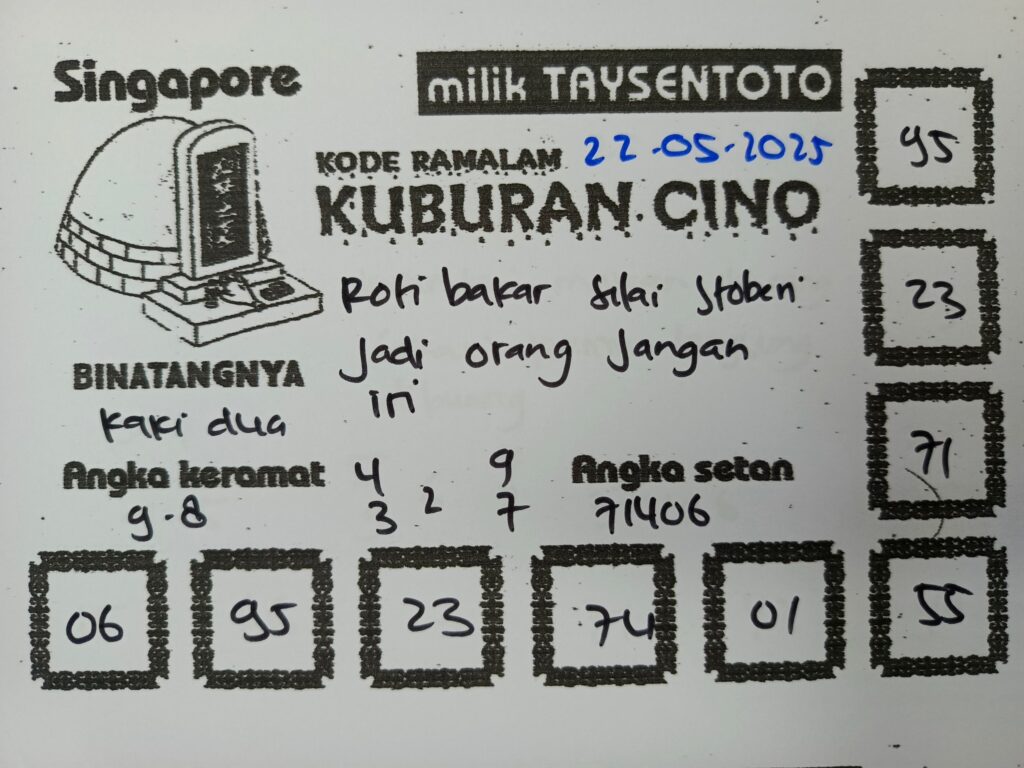 Singapore
milik TAYSENTOTO
KODE RAMALAM 22-05-2025
KUBURAN CINO
Roti bakar Silai Stoberi
Jadi orang Jangan
iri
BINATANGNYA
Kaki dua
Angka keramat
9-8
4 9
3 2 7
Angka setan
71406
95
23
71
06 95 23 74 01 55